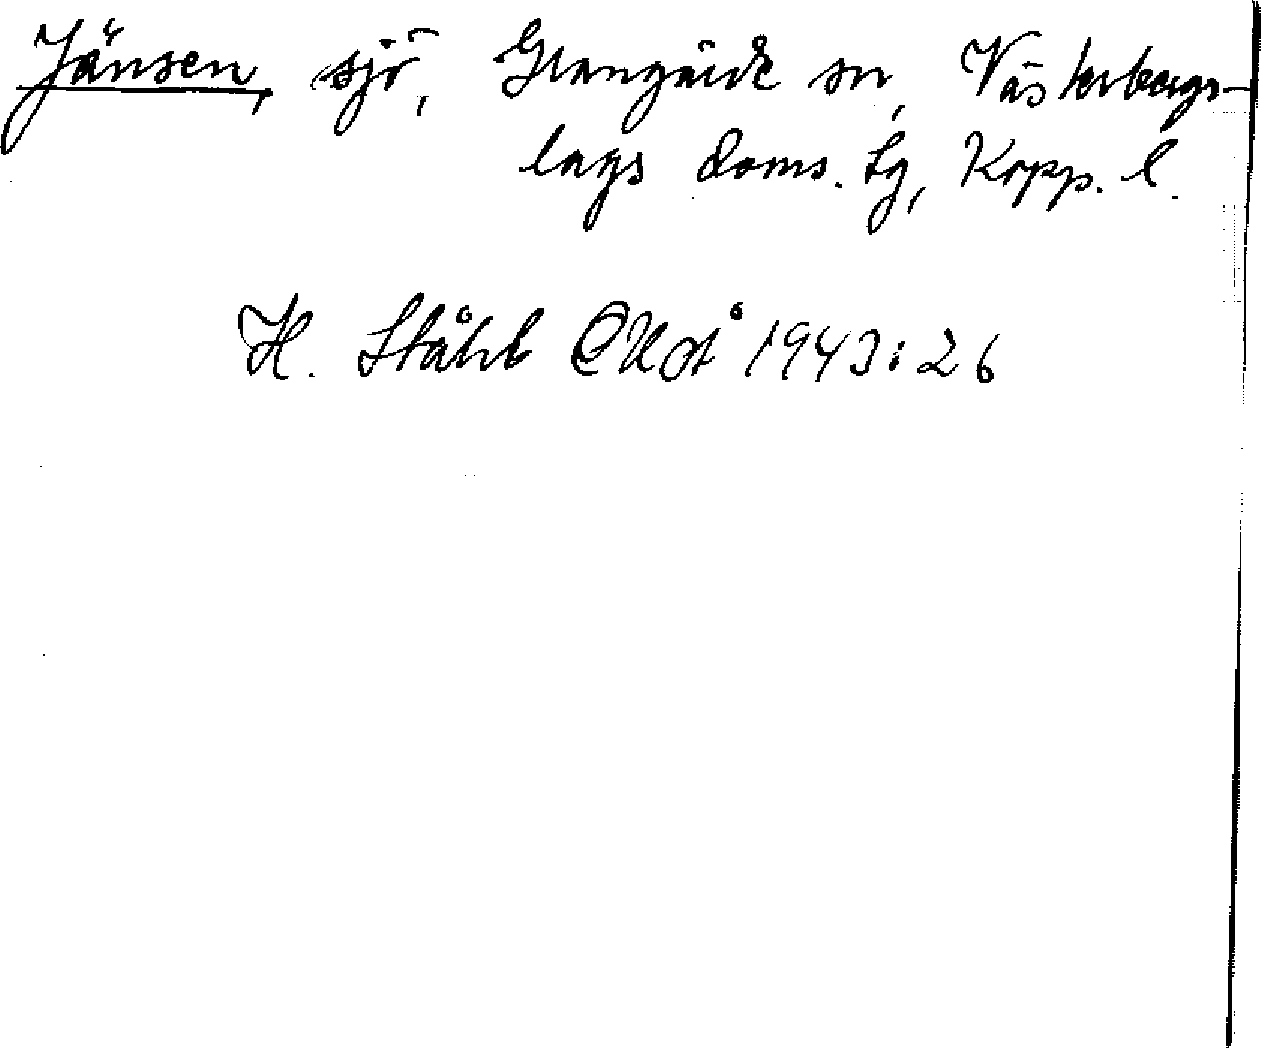 Jänsen, sjö, Grangärde sn, Västerbergs-
lags doms. tg, Kopp. l.
H. Ståhl OUÅ 1943:26